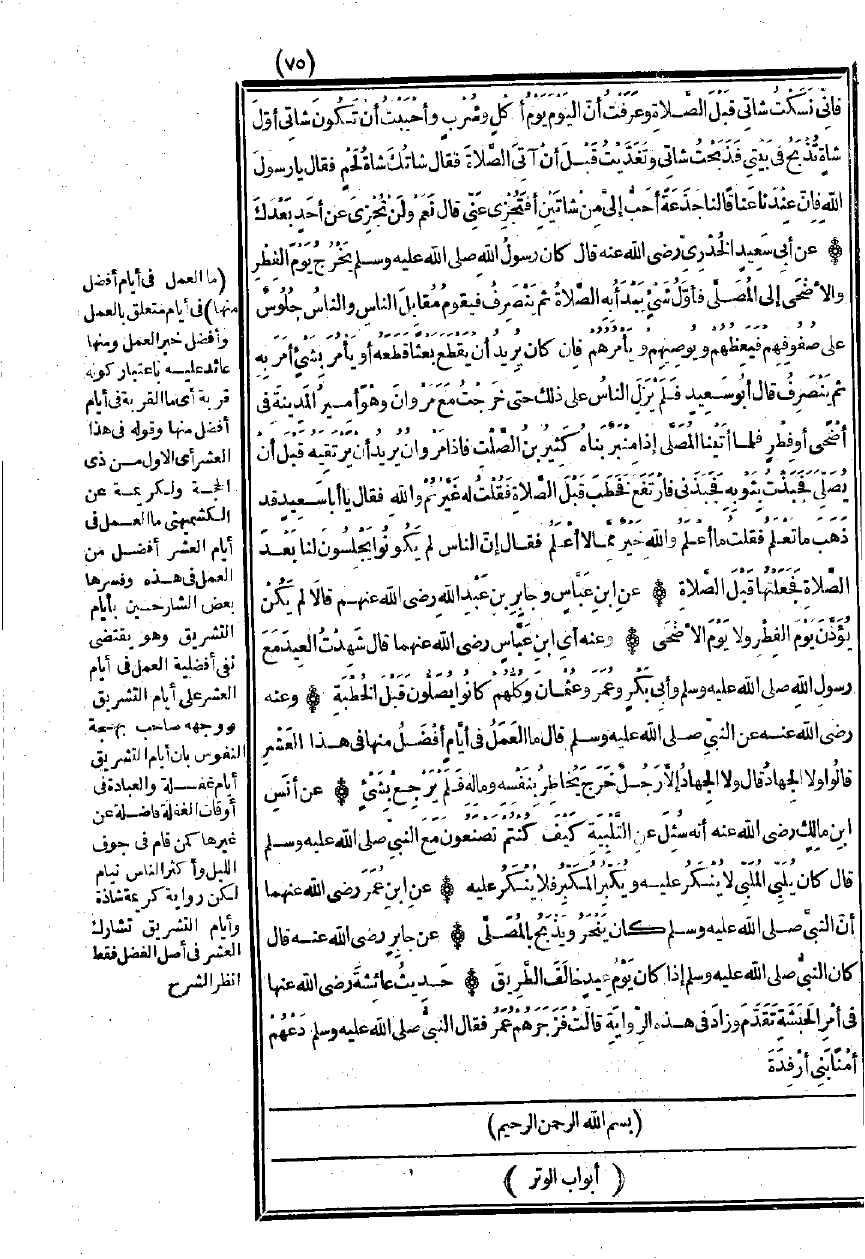 (٧٥)
فَإِنِّي نَسَكْتُ شَاتِي قَبْلَ الصَّلَاةِ وَعَرَفْتُ أَنَّ الْيَوْمَ يَوْمُ أَكْلٍ وَشُرْبٍ وَأَحْبَبْتُ أَنْ تَكُونَ شَاتِي أَوَّلَ
شَاةٍ تُذْبَحُ فِي بَيْتِي فَذَبَحْتُ شَاتِي وَتَغَذَّيْتُ قَبْلَ أَنْ آتِيَ الصَّلَاةَ فَقَالَ شَاتُكَ شَاةُ لَحْمٍ فقال يا رسول
اللهِ فَإِنَّ عِنْدَنَا عَنَاقًا لَنَا جَذَعَةً أَحَبُّ إِلَيَّ مِنْ شَاتَيْنِ أَفَتَجْزِي عَنِّي قال نَعَمْ وَلَنْ تَجْزِيَ عَنْ أَحَدٍ بَعْدَكَ
۞ عن أَبِي سَعِيدٍ الْخُدْرِيِّ رضى الله عنه قال كان رسولُ اللهِ صلى الله عليه وسلم يَخْرُجُ يَوْمَ الْفِطْرِ
وَالأَضْحَى إِلَى الْمُصَلَّى فَأَوَّلُ شَيْءٍ يَبْدَأُ بِهِ الصَّلَاةُ ثُمَّ يَنْصَرِفُ فَيَقُومُ مُقَابِلَ النَّاسِ وَالنَّاسُ جُلُوسٌ
عَلَى صُفُوفِهِمْ فَيَعِظُهُمْ وَيُوصِيهِمْ وَيَأْمُرُهُمْ فَإِنْ كَانَ يُرِيدُ أَنْ يَقْطَعَ بَعْثًا قَطَعَهُ أَوْ يَأْمُرَ بِشَيْءٍ أَمَرَ بِهِ
ثُمَّ يَنْصَرِفُ قَالَ أَبُو سَعِيدٍ فَلَمْ يَزَلِ النَّاسُ عَلَى ذَلِكَ حَتَّى خَرَجْتُ مَعَ مَرْوَانَ وَهْوَ أَمِيرُ الْمَدِينَةِ فِي
أَضْحَى أَوْ فِطْرٍ فَلَمَّا أَتَيْنَا الْمُصَلَّى إِذَا مِنْبَرٌ بَنَاهُ كَثِيرُ بْنُ الصَّلْتِ فَإِذَا مَرْوَانُ يُرِيدُ أَنْ يَرْتَقِيَهُ قَبْلَ أَنْ
يُصَلِّيَ فَجَبَذْتُ بِثَوْبِهِ فَجَبَذَنِي فَارْتَفَعَ فَخَطَبَ قَبْلَ الصَّلَاةِ فَقُلْتُ لَهُ غَيَّرْتُمْ وَاللهِ فقال يا أَبَا سَعِيدٍ قد
ذَهَبَ مَا تَعْلَمُ فَقُلْتُ مَا أَعْلَمُ وَاللهِ خَيْرٌ مِمَّا لَا أَعْلَمُ فقال إِنَّ النَّاسَ لَمْ يَكُونُوا يَجْلِسُونَ لَنَا بَعْدَ
الصَّلَاةِ فَجَعَلْتُهَا قَبْلَ الصَّلَاةِ ۞ عن ابنِ عَبَّاسٍ وجابرِ بنِ عَبْدِ اللهِ رضى الله عنهم قالا لَمْ يَكُنْ
يُؤَذَّنُ يَوْمَ الْفِطْرِ وَلَا يَوْمَ الأَضْحَى ۞ وعنه أي ابنِ عَبَّاسٍ رضى الله عنهما قال شَهِدْتُ الْعِيدَ مَعَ
رسولِ اللهِ صلى الله عليه وسلم وأَبِي بَكْرٍ وعُمَرَ وعُثْمَانَ وَكُلُّهُمْ كَانُوا يُصَلُّونَ قَبْلَ الْخُطْبَةِ ۞ وعنه
رضى الله عنه عن النبيِّ صلى الله عليه وسلم قال مَا الْعَمَلُ فِي أَيَّامٍ أَفْضَلُ مِنْهَا فِي هذا الْعَشْرِ
قَالُوا وَلَا الْجِهَادُ قال وَلَا الْجِهَادُ إِلَّا رَجُلٌ خَرَجَ يُخَاطِرُ بِنَفْسِهِ وَمَالِهِ فَلَمْ يَرْجِعْ بِشَيْءٍ ۞ عن أَنَسِ
ابنِ مالِكٍ رضى الله عنه أنه سُئِلَ عَنِ التَّلْبِيَةِ كَيْفَ كُنْتُمْ تَصْنَعُونَ مَعَ النبيِّ صلى الله عليه وسلم
قال كَانَ يُلَبِّي الْمُلَبِّي لَا يُنْكَرُ عَلَيْهِ وَيُكَبِّرُ الْمُكَبِّرُ فَلَا يُنْكَرُ عَلَيْهِ ۞ عن ابنِ عُمَرَ رضى الله عنهما
أَنَّ النبيَّ صلى الله عليه وسلم كَانَ يَنْحَرُ وَيَذْبَحُ بِالْمُصَلَّى ۞ عن جابِرٍ رضى الله عنه قال
كان النبيُّ صلى الله عليه وسلم إِذَا كَانَ يَوْمُ عِيدٍ خَالَفَ الطَّرِيقَ ۞ حَدِيثُ عائِشَةَ رضى الله عنها
فِي أَمْرِ الْحَبَشَةِ تَقَدَّمَ وَزَادَ فِي هذه الرِّوَايَةِ قَالَتْ فَزَجَرَهُمْ عُمَرُ فقال النبيُّ صلى الله عليه وسلم دَعْهُمْ
أَمْنًا بَنِي أَرْفِدَةَ
(بسم الله الرحمن الرحيم)
(أبواب الوتر)
(ما العمل فى أيام أفضل
منها) فى أيام متعلق بالعمل
وأفضل خبر العمل ومنها
عائد عليه باعتبار كونه
قربة أى ما القربة فى أيام
أفضل منها وقوله فى هذا
العشر أى الاول من ذى
الحجة ولكريمة عن
الكشميهنى ما العمل فى
أيام العشر أفضل من
العمل فى هذه وفسرها
بعض الشارحين بأيام
التشريق وهو يقتضى
نفى أفضلية العمل فى أيام
العشر على أيام التشريق
ووجهه صاحب بهجة
النفوس بان أيام التشريق
أيام غفلة والعبادة فى
أوقات الغفلة فاضلة عن
غيرها كمن قام فى جوف
الليل وأكثر الناس نيام
لكن رواية كريمة شاذة
وأيام التشريق تشارك
العشر فى أصل الفضل فقط
انظر الشرح